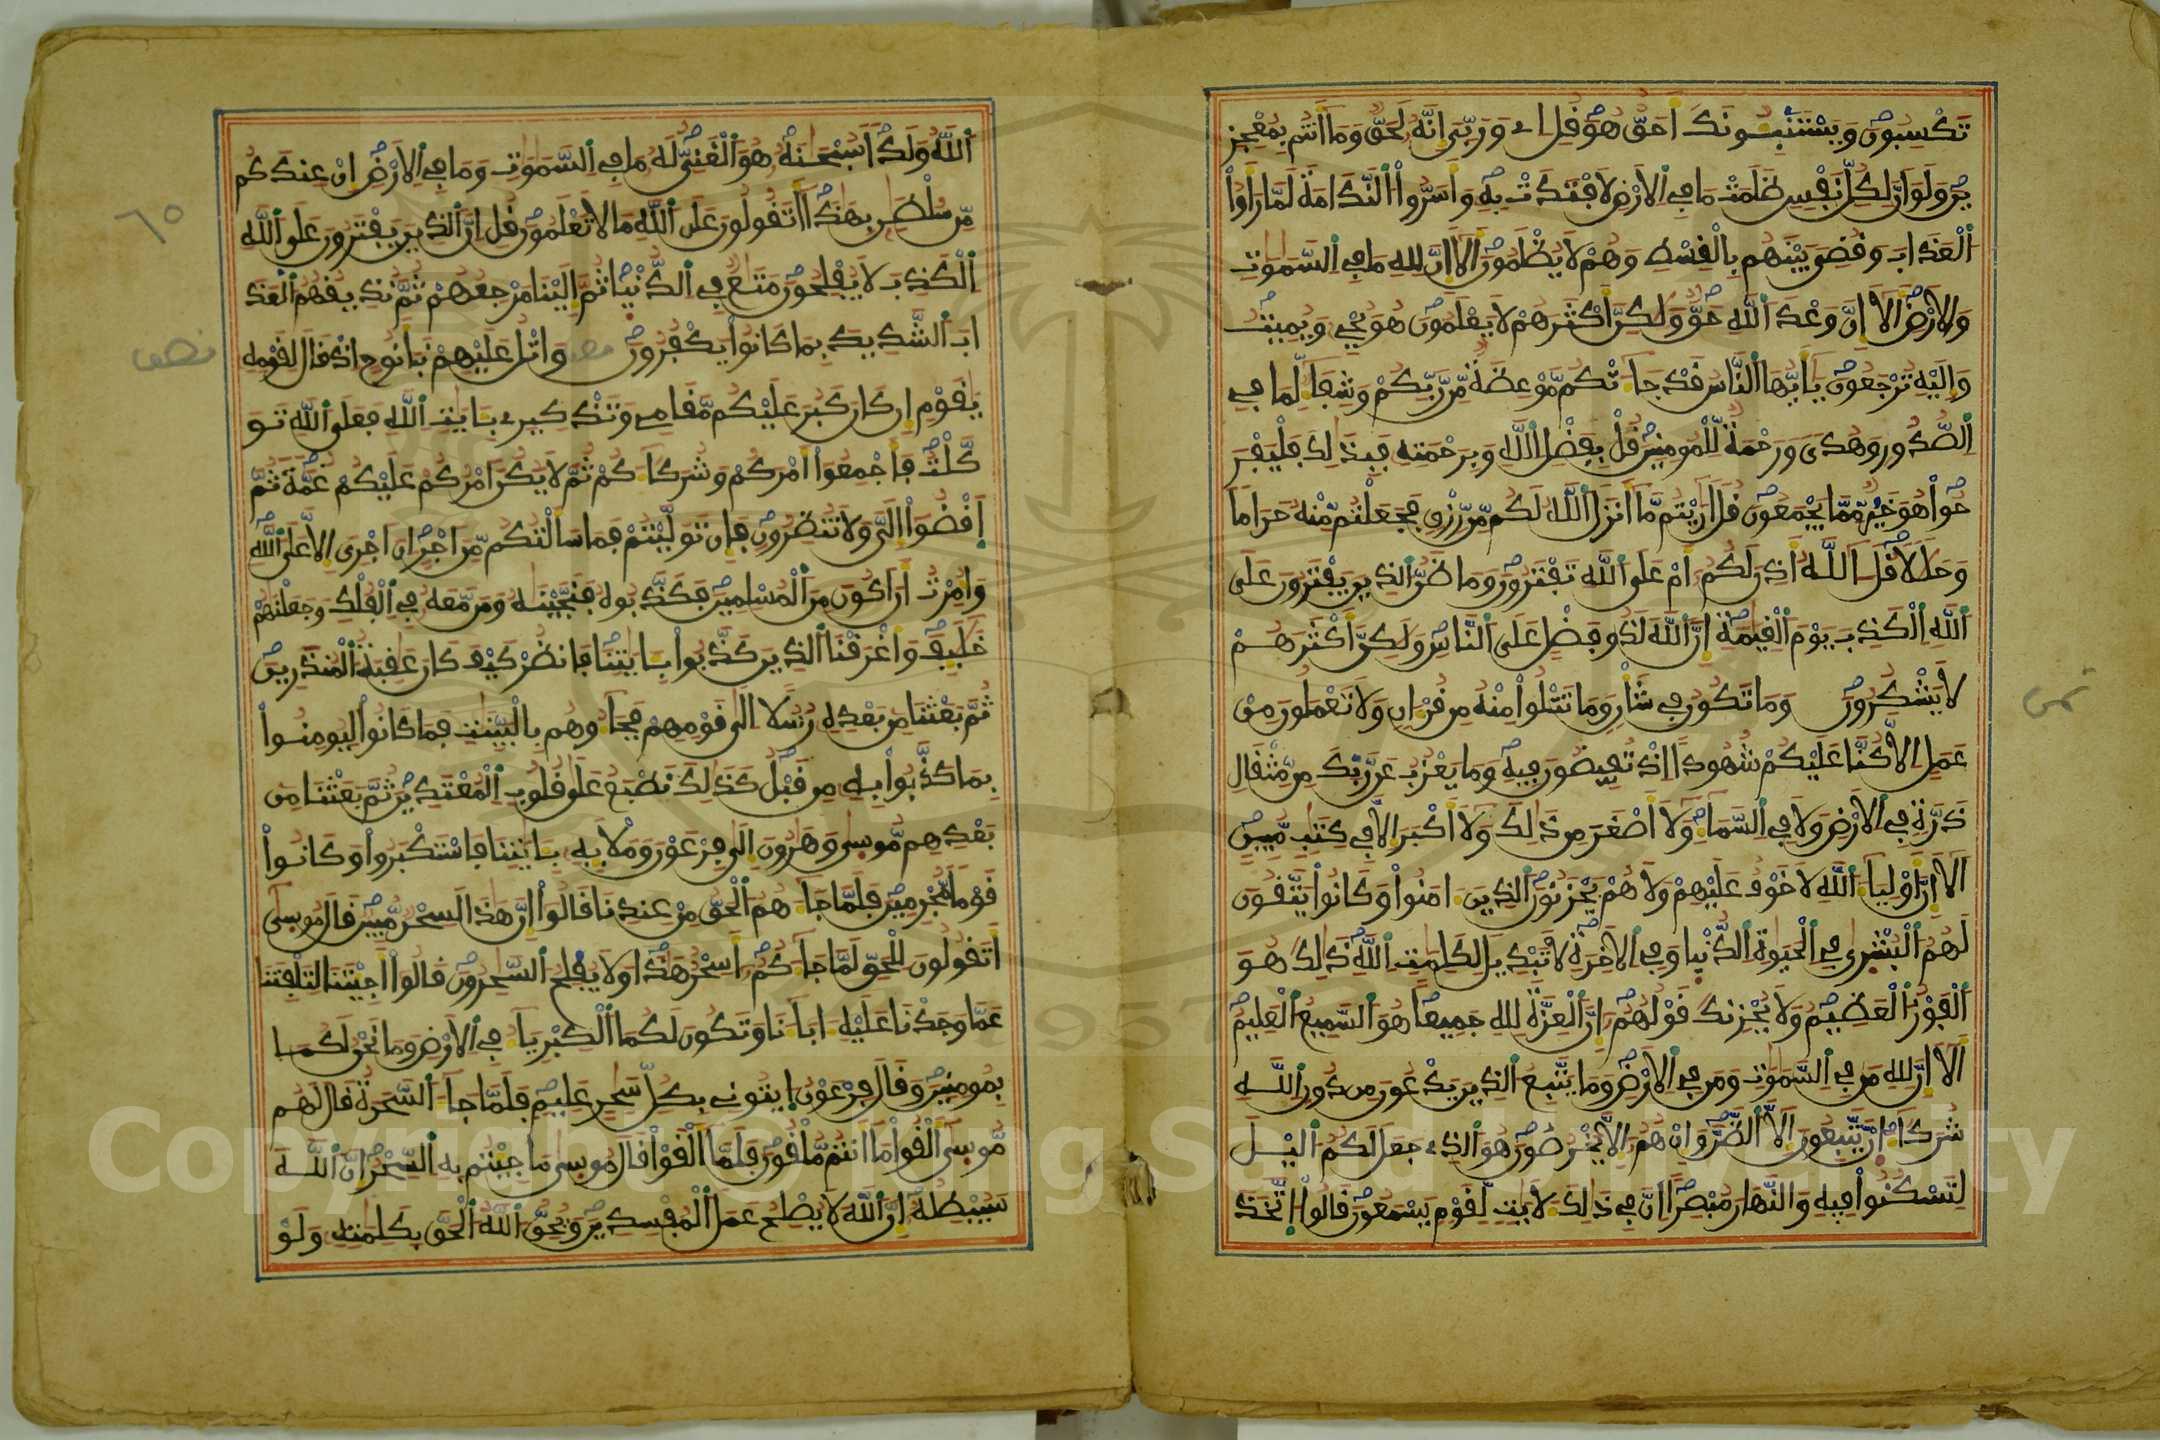 تكسبون ويستنبونك احق هو فل اے وربى انه لحق وما انتم بمعجز
ين ولو ان لكل نفس ظلمت ما فى الارض لافتدت به واسروا الندامة لما راوا
العذاب وفضى بينهم بالفسط وهم لا يظلمون الا ان لله ما فى السموت
والارض الا ان وعد الله حق ولكن اكثرهم لا يعلمون هو يحے ويميت
واليه ترجعون يايها الناس فد جاتكم موعظة من ربكم وشفا لما فى
الصدور وهدى ورحمة للمومنين فل بفضل الله وبرحمته فبذلك فليفر
حوا هو خير مما يجمعون فل اريتم ما انزل الله لكم من رزق فجعلتم منه حراما
وحللا فل الله اذن لكم ام على الله تفترون وما ظن الذين يفترون على
الله الكذب يوم الفيمة ان الله لذو فضل على الناس ولكن اكثرهم
لا يشكرون وما تكون فى شان وما تتلوا منه من فران ولا تعملون من
ثمن
عمل الا كنا عليكم شهودا اذ تفيضون فيه وما يعزب عن ربك من مثفال
ذرة فى الارض ولا فى السما ولا اصغر من ذلك ولا اكبر الا فى كتب مبين
الا ان اوليا الله لا خوف عليهم ولا هم يحزنون الذين امنوا وكانوا يتفون
لهم البشرى فى الحيوة الدنيا وفى الاخرة لا تبديل لكلمت الله ذلك هو
الفوز العظيم ولا يحزنك فولهم ان العزة لله جميعا هو السميع العليم
الا ان لله من فى السموت ومن فى الارض وما يتبع الذين يدعون من دون الله
شركا ان يتبعون الا الظن وان هم الا يخرصون هو الذے جعل لكم اليل
لتسكنوا فيه والنهار مبصرا ان فى ذلك لايت لفوم يسمعون فالوا اتخذ
الله ولدا سبحنه هو الغنى له ما فى السموت وما فى الارض ان عندكم
من سلطن بهذا اتفولون على الله ما لا تعلمون فل ان الذين يفترون على الله
٦٥
الكذب لا يفلحون متع فى الدنيا ثم الينا مرجعهم ثم نذيفهم العذ
اب الشديد بما كانوا يكفرون واتل عليهم نبا نوح اذ فال لفومه
نصف
يفوم ان كان كبر عليكم مفامے وتذكيرے بايت الله فعلى الله تو
كلت فاجمعوا امركم وشركاكم ثم لا يكن امركم عليكم غمة ثم
افضوا الى ولا تنظرون فان توليتم فما سالتكم من اجر ان اجرى الا على الله
وامرت ان اكون من المسلمين فكذبوه فنجينه ومن معه فى الفلك وجعلنهم
خليف واغرفنا الذين كذبوا بايتنا فانظر كيف كان عفبة المنذرين
ثم بعثنا من بعده رسلا الى فومهم فجاوهم بالبينت فما كانوا ليومنوا
بما كذبوا به من فبل كذلك نطبع على فلوب المعتدين ثم بعثنا من
بعدهم موسى وهرون الى فرعون وملايه بايتنا فاستكبروا وكانوا
فوما مجرمين فلما جاهم الحق من عندنا فالوا ان هذا لسحر مبين فال موسى
اتفولون للحق لما جاكم اسحر هذا ولا يفلح السحرون فالوا اجيتنا لتلفتنا
عما وجدنا عليه ابانا وتكون لكما الكبريا فى الارض وما نحن لكما
بمومنين وفال فرعون ايتونے بكل سحر عليم فلما جا السحرة فال لهم
موسى الفوا ما انتم ملفون فلما الفوا فال موسى ما جيتم به السحر ان الله
سيبطله ان الله لا يصلح عمل المفسدين ويحق الله الحق بكلمته ولو
Copyright © King Saud University
1957